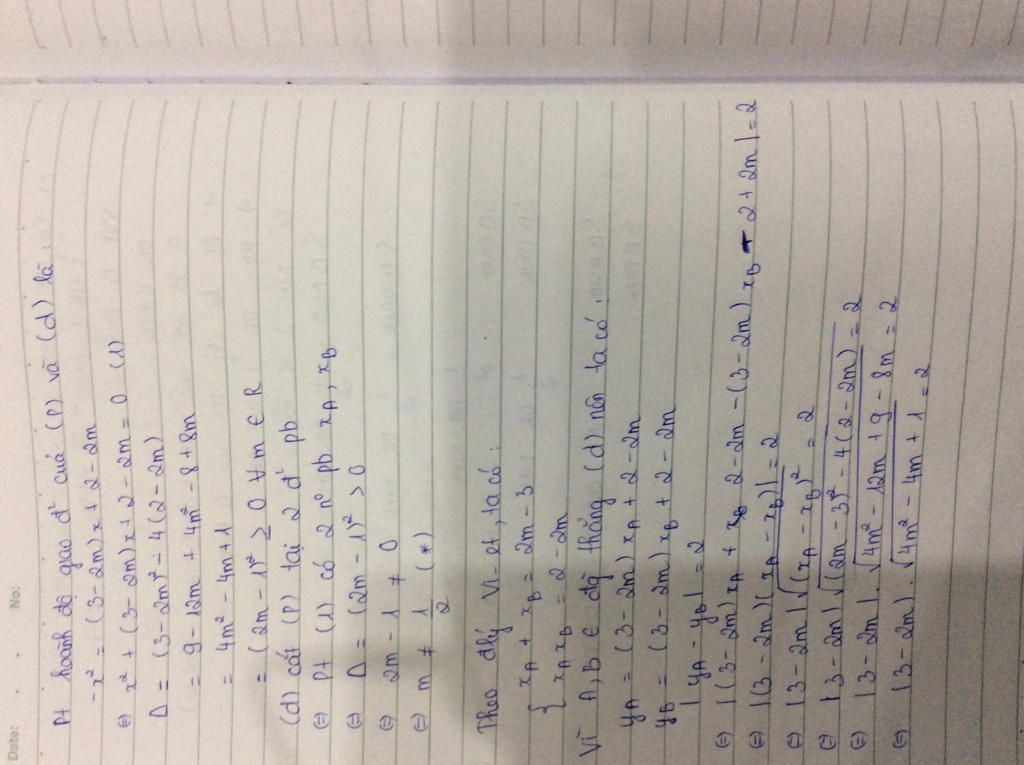 Date: . . No:
Pt hoành độ giao đ² của (P) và (d) là:
-x² = (3-2m)x + 2 - 2m
⇔ x² + (3-2m)x + 2 - 2m = 0 (1)
Δ = (3-2m)² - 4(2-2m)
= 9 - 12m + 4m² - 8 + 8m
= 4m² - 4m + 1
= (2m - 1)² ≥ 0 ∀ m ∈ R
(d) cắt (P) tại 2 đ² pb
⇔ Pt (1) có 2 n⁰ pb x_A, x_B
⇔ Δ = (2m - 1)² > 0
⇔ 2m - 1 ≠ 0
⇔ m ≠ 1/2 (*)
Theo đlý Vi-et, ta có:
{ x_A + x_B = 2m - 3
x_A x_B = 2 - 2m
Vì A, B ∈ đg thẳng (d) nên ta có:
y_A = (3-2m)x_A + 2 - 2m
y_B = (3-2m)x_B + 2 - 2m
|y_A - y_B| = 2
⇔ |(3-2m)x_A + 2 - 2m - (3-2m)x_B - 2 + 2m| = 2
⇔ |(3-2m)(x_A - x_B)| = 2
⇔ |3-2m| √(x_A - x_B)² = 2
⇔ |3-2m| √((2m-3)² - 4(2-2m)) = 2
⇔ |3-2m| . √(4m² - 12m + 9 - 8m) = 2
⇔ |3-2m| . √(4m² - 4m + 1) = 2